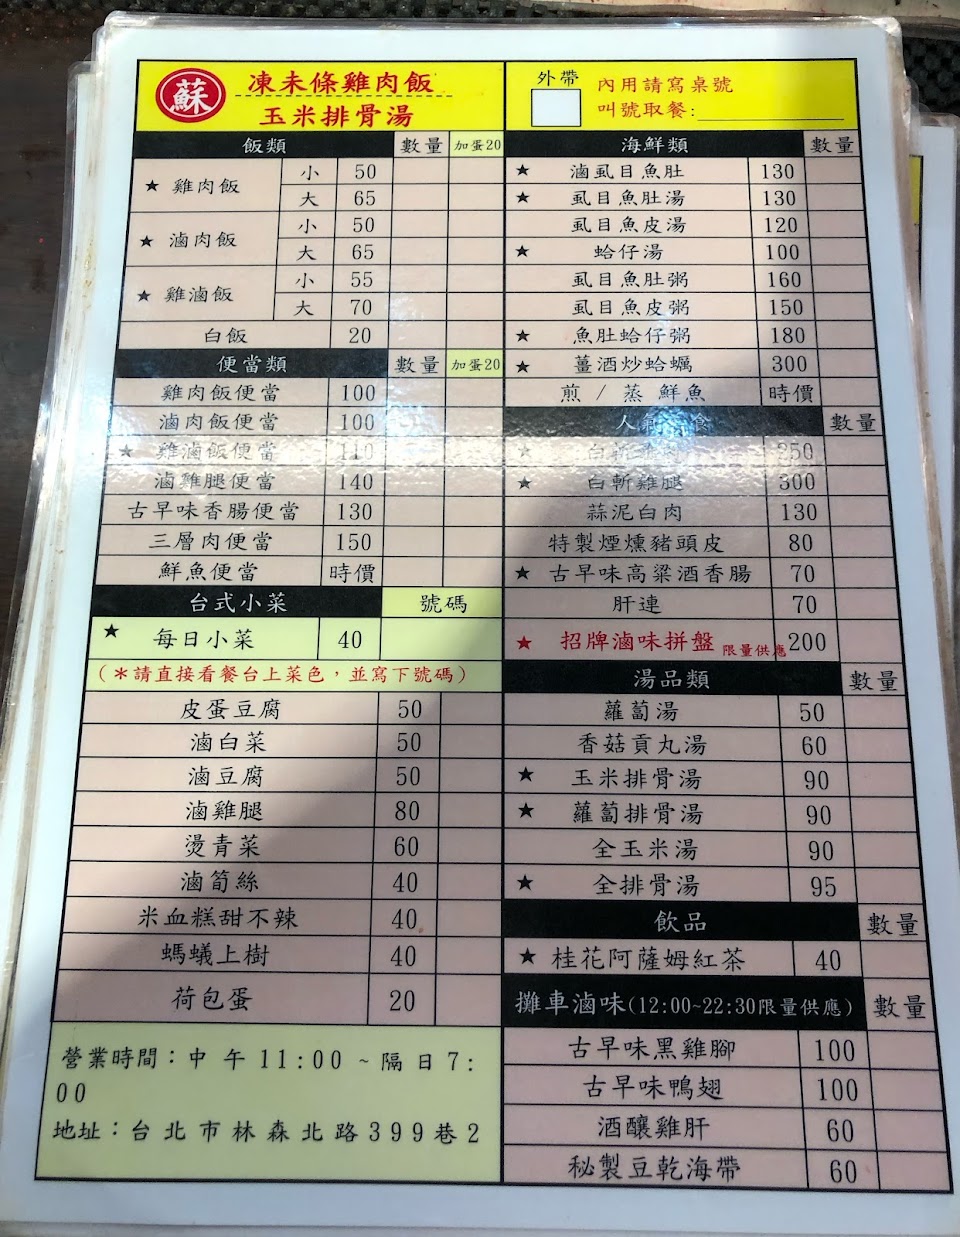 蘇
凍未條雞肉飯
玉米排骨湯
外帶
內用請寫桌號
叫號取餐:
飯類 數量 加蛋20
★ 雞肉飯 小 50
大 65
★ 滷肉飯 小 50
大 65
★ 雞滷飯 小 55
大 70
白飯 20
便當類 數量 加蛋20
雞肉飯便當 100
滷肉飯便當 100
★ 雞滷飯便當 110
滷雞腿便當 140
古早味香腸便當 130
三層肉便當 150
鮮魚便當 時價
台式小菜 號碼
★ 每日小菜 40
(*請直接看餐台上菜色,並寫下號碼)
皮蛋豆腐 50
滷白菜 50
滷豆腐 50
滷雞腿 80
燙青菜 60
滷筍絲 40
米血糕甜不辣 40
螞蟻上樹 40
荷包蛋 20
營業時間:中午11:00~隔日7:
00
地址:台北市林森北路399巷2
海鮮類 數量
★ 滷虱目魚肚 130
★ 虱目魚肚湯 130
虱目魚皮湯 120
★ 蛤仔湯 100
虱目魚肚粥 160
虱目魚皮粥 150
★ 魚肚蛤仔粥 180
★ 薑酒炒蛤蠣 300
煎 / 蒸 鮮魚 時價
人氣 食 數量
★ 白斬雞 250
★ 白斬雞腿 300
蒜泥白肉 130
特製煙燻豬頭皮 80
★ 古早味高粱酒香腸 70
肝連 70
★ 招牌滷味拼盤 限量供應 200
湯品類 數量
蘿蔔湯 50
香菇貢丸湯 60
★ 玉米排骨湯 90
★ 蘿蔔排骨湯 90
全玉米湯 90
★ 全排骨湯 95
飲品 數量
★ 桂花阿薩姆紅茶 40
攤車滷味(12:00~22:30限量供應) 數量
古早味黑雞腳 100
古早味鴨翅 100
酒釀雞肝 60
秘製豆乾海帶 60